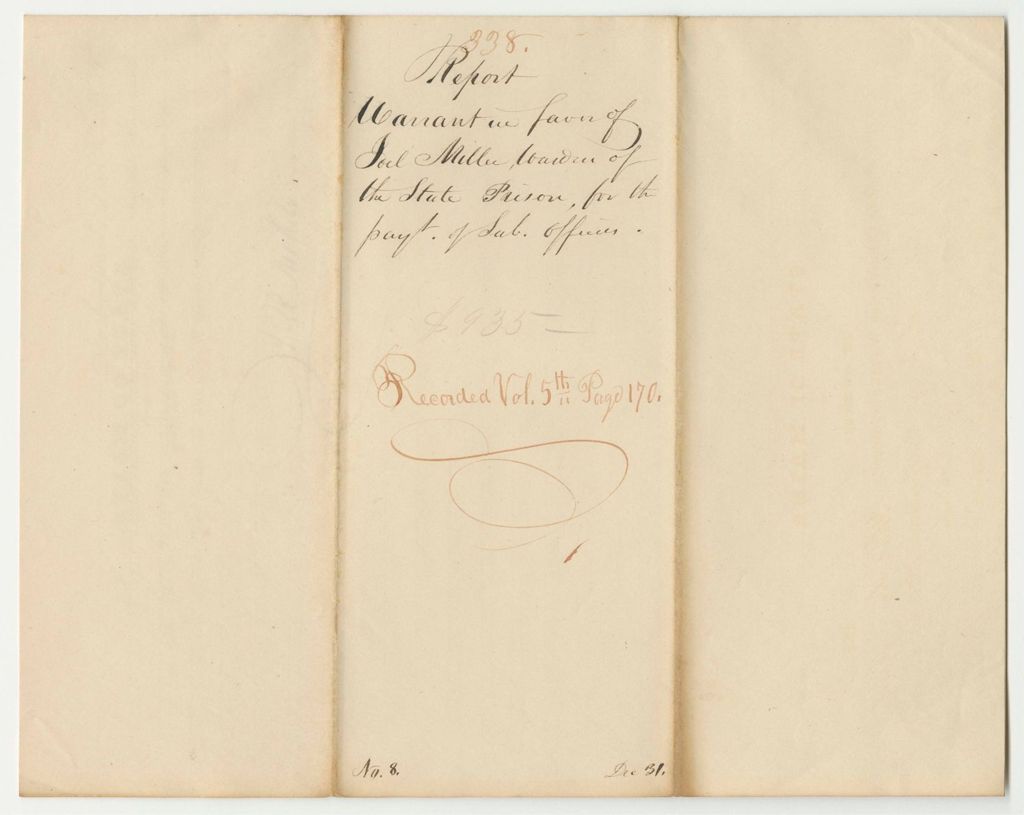 338.
Report
Warrant in favor of
Joel Miller Warden of
the State Prison, for the
payt. of Sub. officers.
$935=
Recorded Vol. 5th Page 170.
No. 8.
Dec 31.